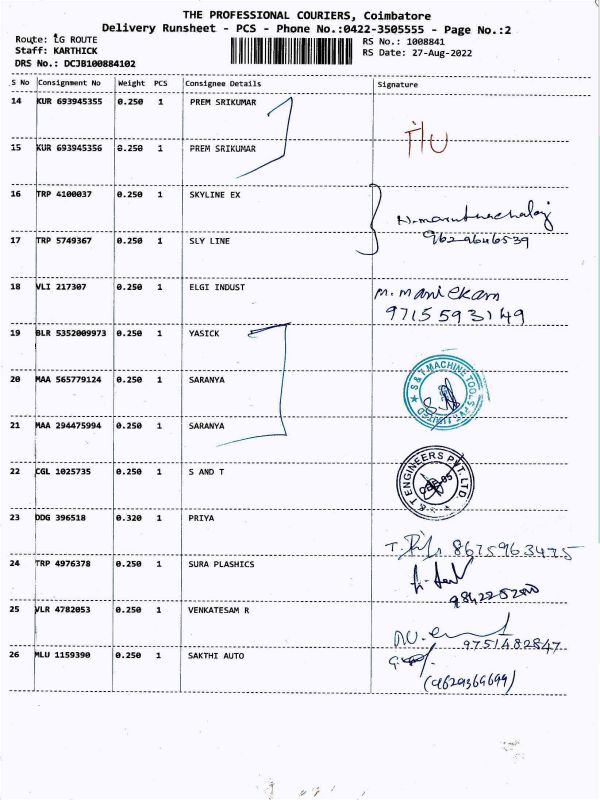 THE PROFESSIONAL COURIERS, Coimbatore
Delivery Runsheet - PCS - Phone No.:0422-3505555 - Page No.:2
Route: LG ROUTE
Staff: KARTHICK
DRS No.: DCJB100884102
RS No.: 1008841
RS Date: 27-Aug-2022
S No Consignment No Weight PCS Consignee Details Signature
14 KUR 693945355 0.250 1 PREM SRIKUMAR
15 KUR 693945356 0.250 1 PREM SRIKUMAR
16 TRP 4100037 0.250 1 SKYLINE EX
17 TRP 5749367 0.250 1 SLY LINE
9629646539
18 VLI 217307 0.250 1 ELGI INDUST M. Manickam
9715593149
19 BLR 5352009973 0.250 1 YASICK
20 MAA 565779124 0.250 1 SARANYA
S & T MACHINE TOOLS PVT. LIMITED
21 MAA 294475994 0.250 1 SARANYA
22 CGL 1025735 0.250 1 S AND T
& T ENGINEERS PVT. LTD
23 DDG 396518 0.320 1 PRIYA
8675963475
24 TRP 4976378 0.250 1 SURA PLASHICS
25 VLR 4782053 0.250 1 VENKATESAM R
9751482847
26 MLU 1159390 0.250 1 SAKTHI AUTO
(9629369699)